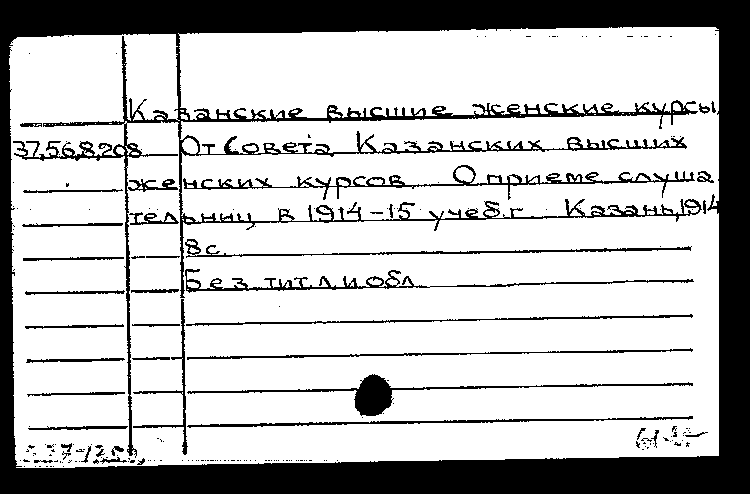 Казанские высшие женские курсы
37.56.8.208 От Совета Казанских высших
женских курсов О приеме слуша
тельниц в 1914-15 учеб.г. Казань,1914
8с.
Без тит.л.и обл.